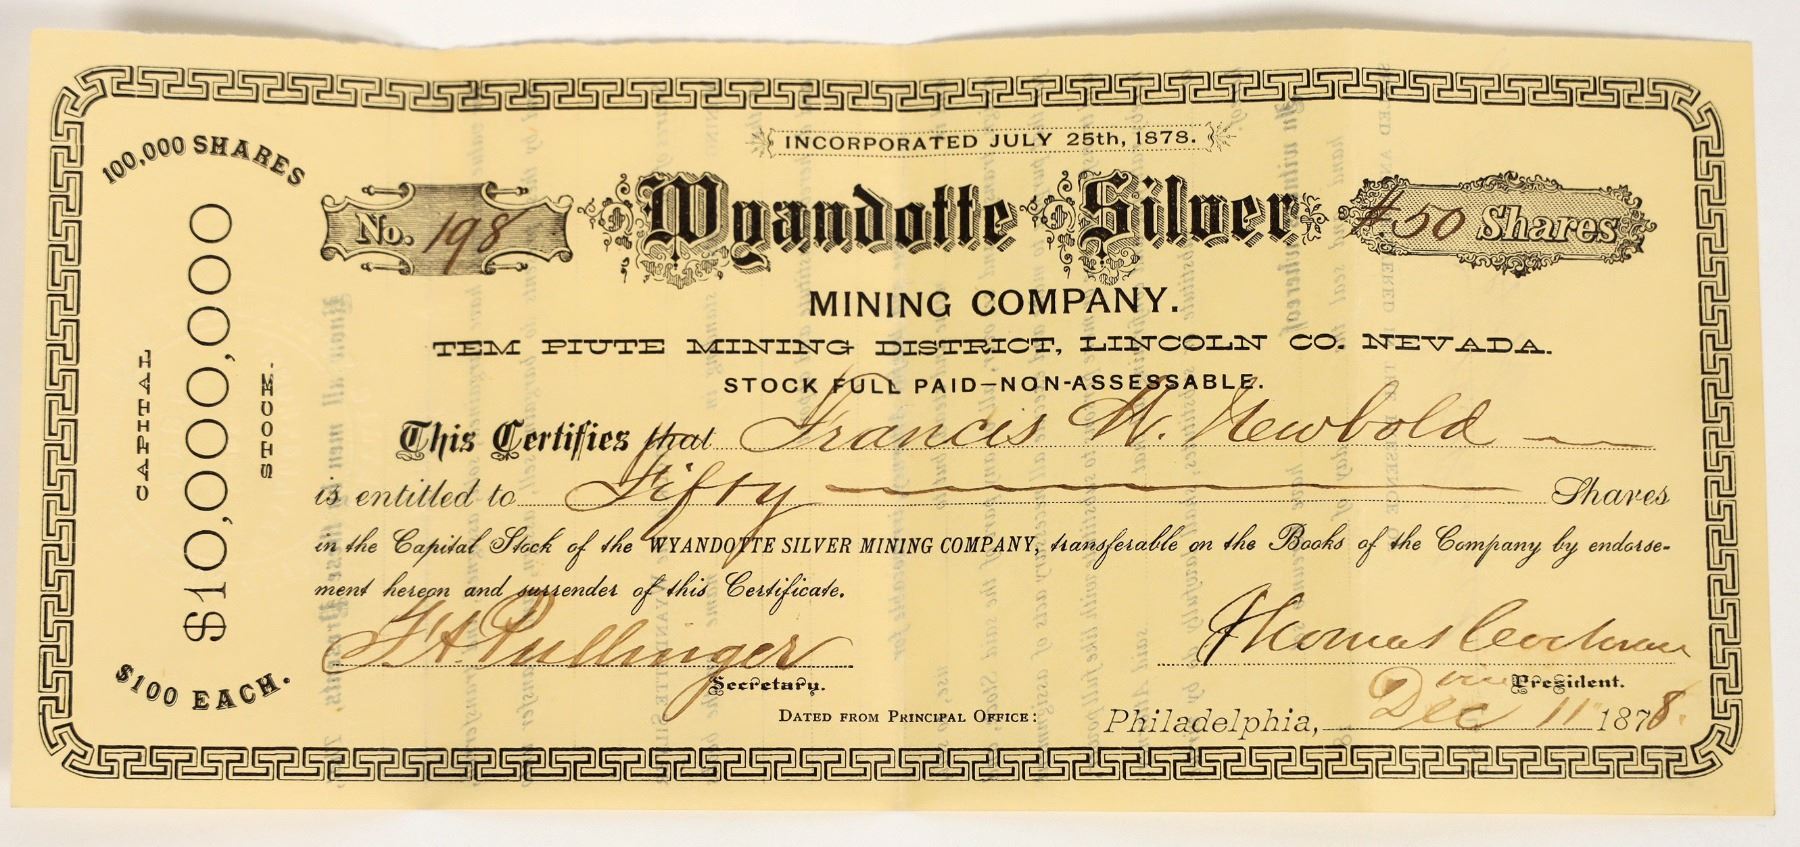 INCORPORATED JULY 25th, 1878.
100,000 SHARES
CAPITAL
$10,000,000
STOCK.
$100 EACH.
No. 198
Wyandotte Silver
#50 Shares
MINING COMPANY.
TEM PIUTE MINING DISTRICT, LINCOLN CO. NEVADA.
STOCK FULL PAID—NON-ASSESSABLE.
This Certifies that Francis W. Newbold
is entitled to Fifty Shares
in the Capital Stock of the WYANDOTTE SILVER MINING COMPANY, transferable on the Books of the Company by endorse-
ment hereon and surrender of this Certificate.
F A. Pullinger
Secretary.
Thomas Cochran
Vice President.
DATED FROM PRINCIPAL OFFICE:
Philadelphia, Dec 11" 1878.